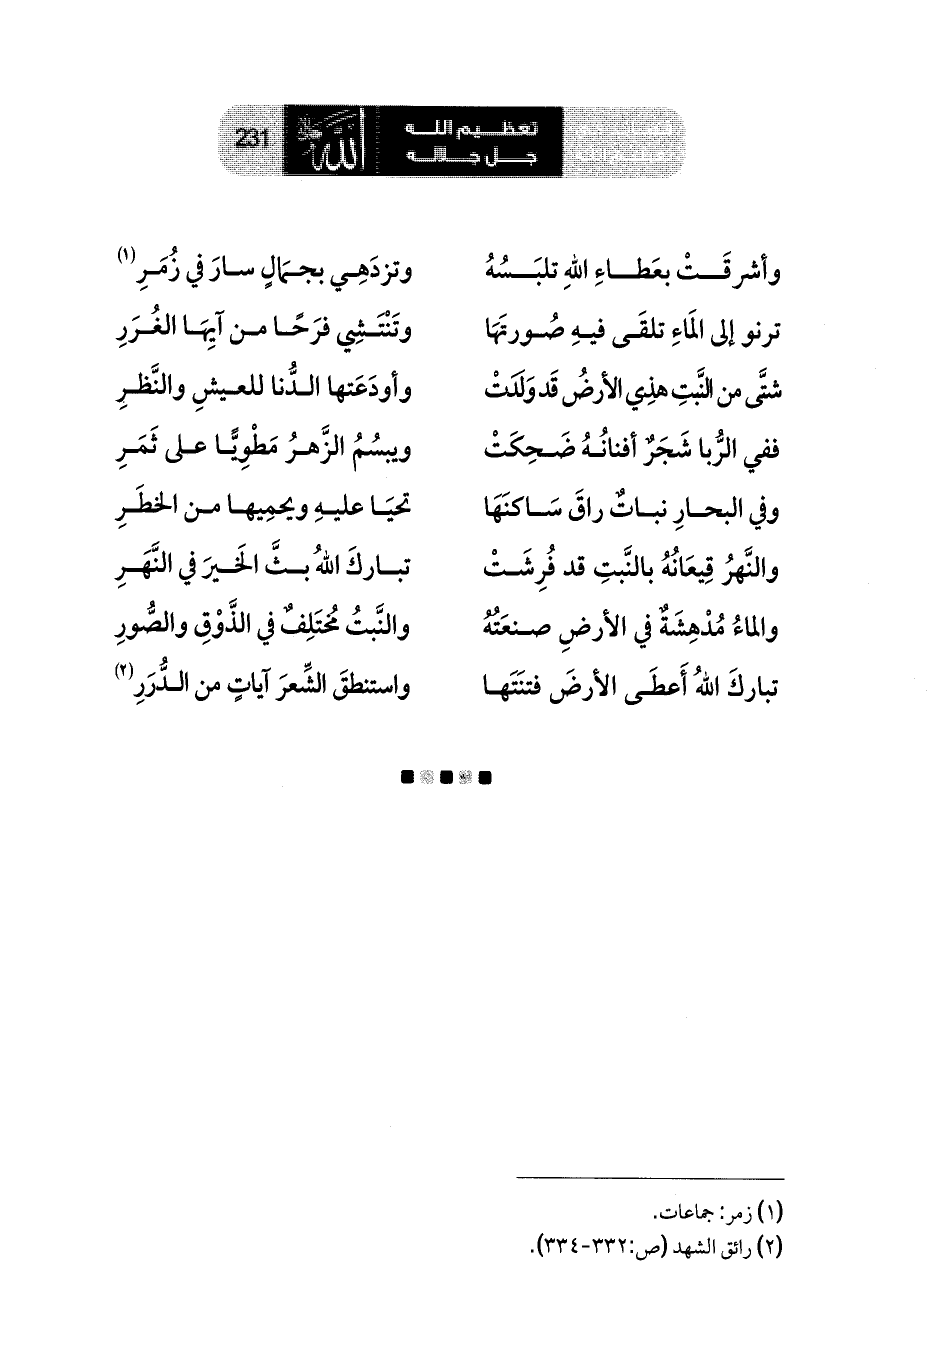 تعظيم الله
جل جلاله
الله
231
وأشرقَتْ بعَطاءِ اللهِ تلبَسُهُ وتزدَهِي بجمَالٍ سارَ في زُمَرِ(١)
ترنو إلى المَاءِ تلقَى فيهِ صُورتهَا وتَنْتَشِي فرَحًا من آيِهَا الغُرَرِ
شتَّى من النَّبتِ هذِي الأرضُ قَد وَلَدَتْ وأودَعَتها الدُّنا للعيشِ والنَّظرِ
ففي الرُّبا شَجَرٌ أفنانُهُ ضَحِكَتْ ويبسُمُ الزَّهرُ مَطْوِيًّا على ثَمَرِ
وفي البحارِ نباتٌ راقَ سَاكنَهَا تحيَا عليهِ ويحمِيها من الخطَرِ
والنَّهرُ قِيعَانُهُ بالنَّبتِ قد فُرِشَتْ تباركَ اللهُ بثَّ الخَيرَ في النَّهَرِ
والماءُ مُدْهِشَةٌ في الأرضِ صنعَتُهُ والنَّبتُ مُختَلِفٌ في الذَّوْقِ والصُّورِ
تباركَ اللهُ أَعطَى الأرضَ فتنَتَها واستنطقَ الشِّعرَ آياتٍ من الدُّرَرِ(٢)
(١) زمر: جماعات.
(٢) رائق الشهد (ص:٣٣٢-٣٣٤).